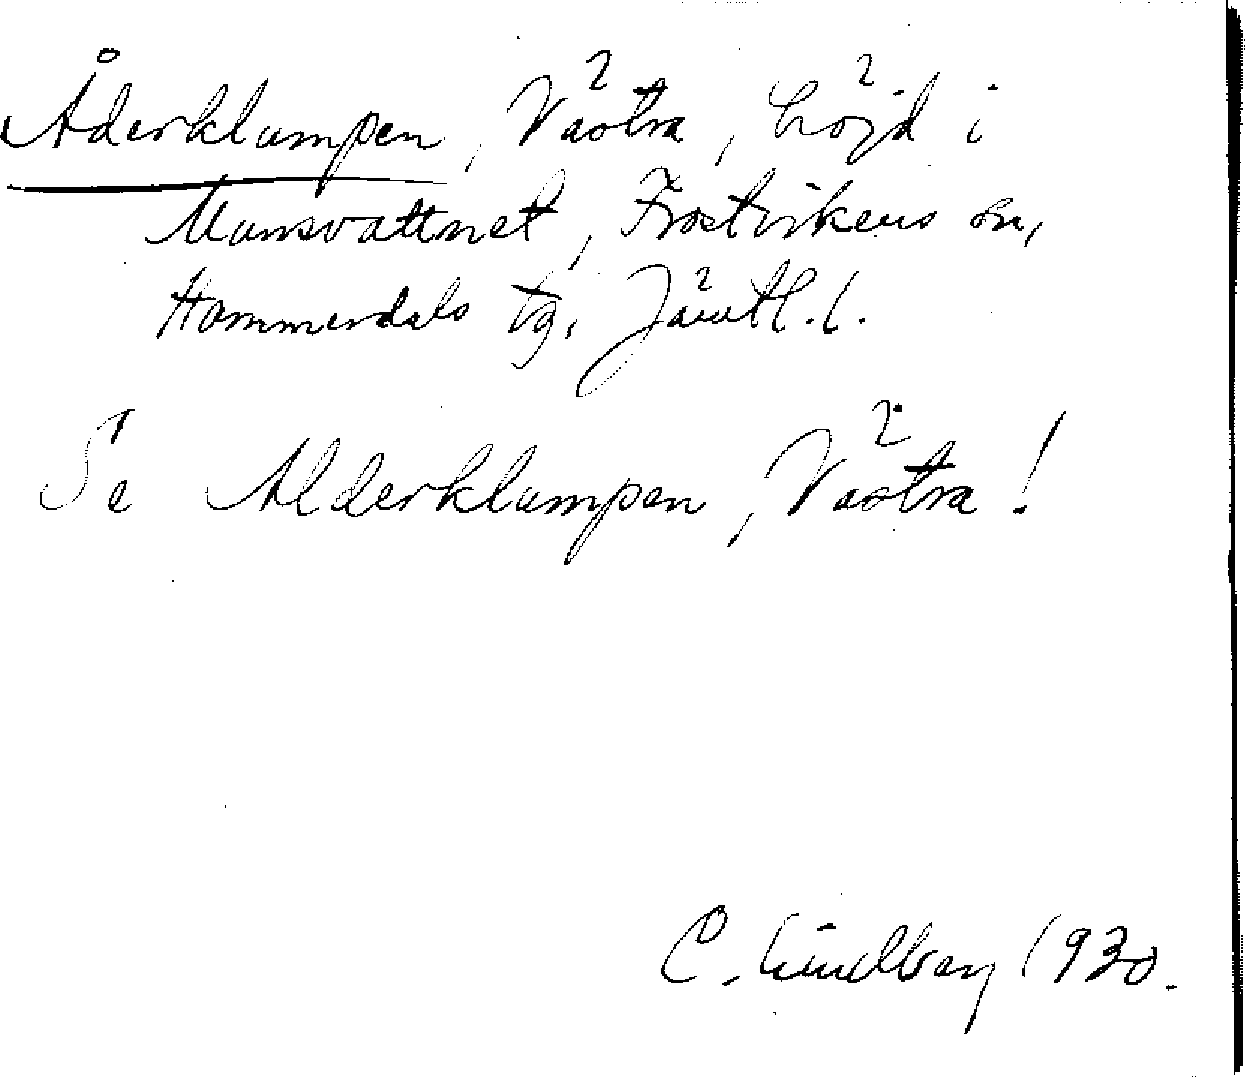 Åderklumpen, Västra, höjd i
Munsvattnet, Frostvikens sn,
Hammerdals tg, Jämtl. l.
Se Alderklumpen, Västra!
C. Lindberg 1930.